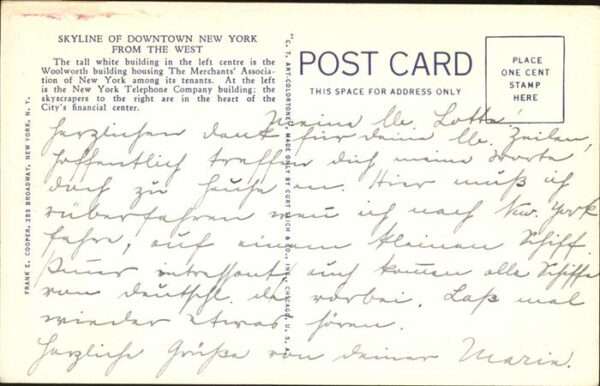 SKYLINE OF DOWNTOWN NEW YORK
FROM THE WEST
The tall white building in the left centre is the
Woolworth building housing The Merchants' Associa-
tion of New York among its tenants. At the left
is the New York Telephone Company building; the
skyscrapers to the right are in the heart of the
City's financial center.
FRANK E. COOPER, 283 BROADWAY, NEW YORK, N. Y.
"C. T. ART-COLORTONE" MADE ONLY BY CURT TEICH & CO., INC., CHICAGO, U. S. A.
POST CARD
THIS SPACE FOR ADDRESS ONLY
PLACE
ONE CENT
STAMP
HERE
Meine lb. Lotte!
Herzlichen dank für deine lb. Zeilen,
hoffentlich treffen dich meine Worte
doch zu hause an. Hier muß ich
rüberfahren wen ich nach Nw. York
fahre, auf einem kleinen Schiff.
intressant und komen alle Schiffe
von deutschl. da vorbei. Laß mal
wieder etwas hören.
Herzliche Grüße von deiner Marie.